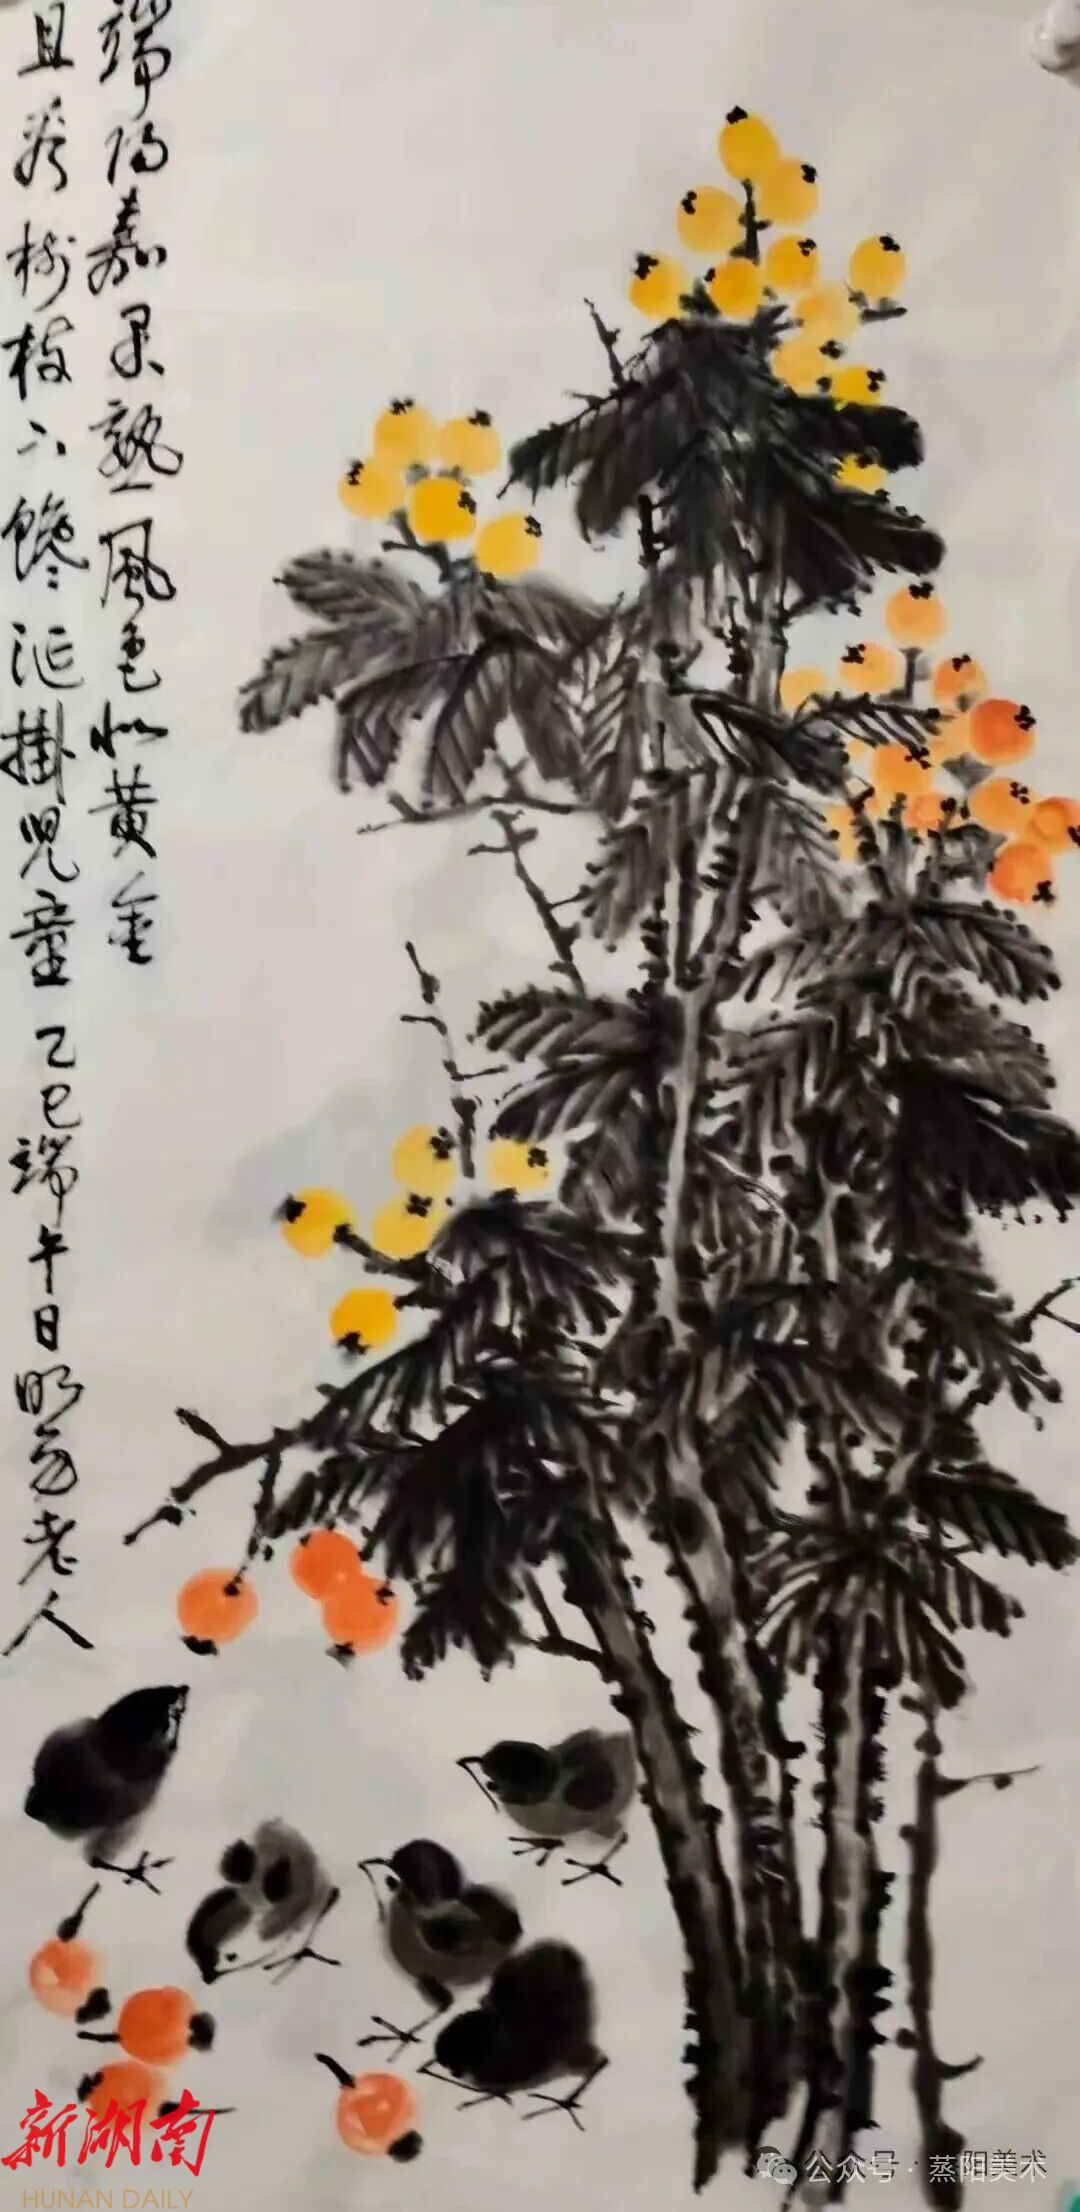 端阳嘉果熟风色似黄金
且看树枝下馋涎掛児童 乙巳端午日明方老人
新湖南
HUNAN DAILY
公众号·蒸阳美术